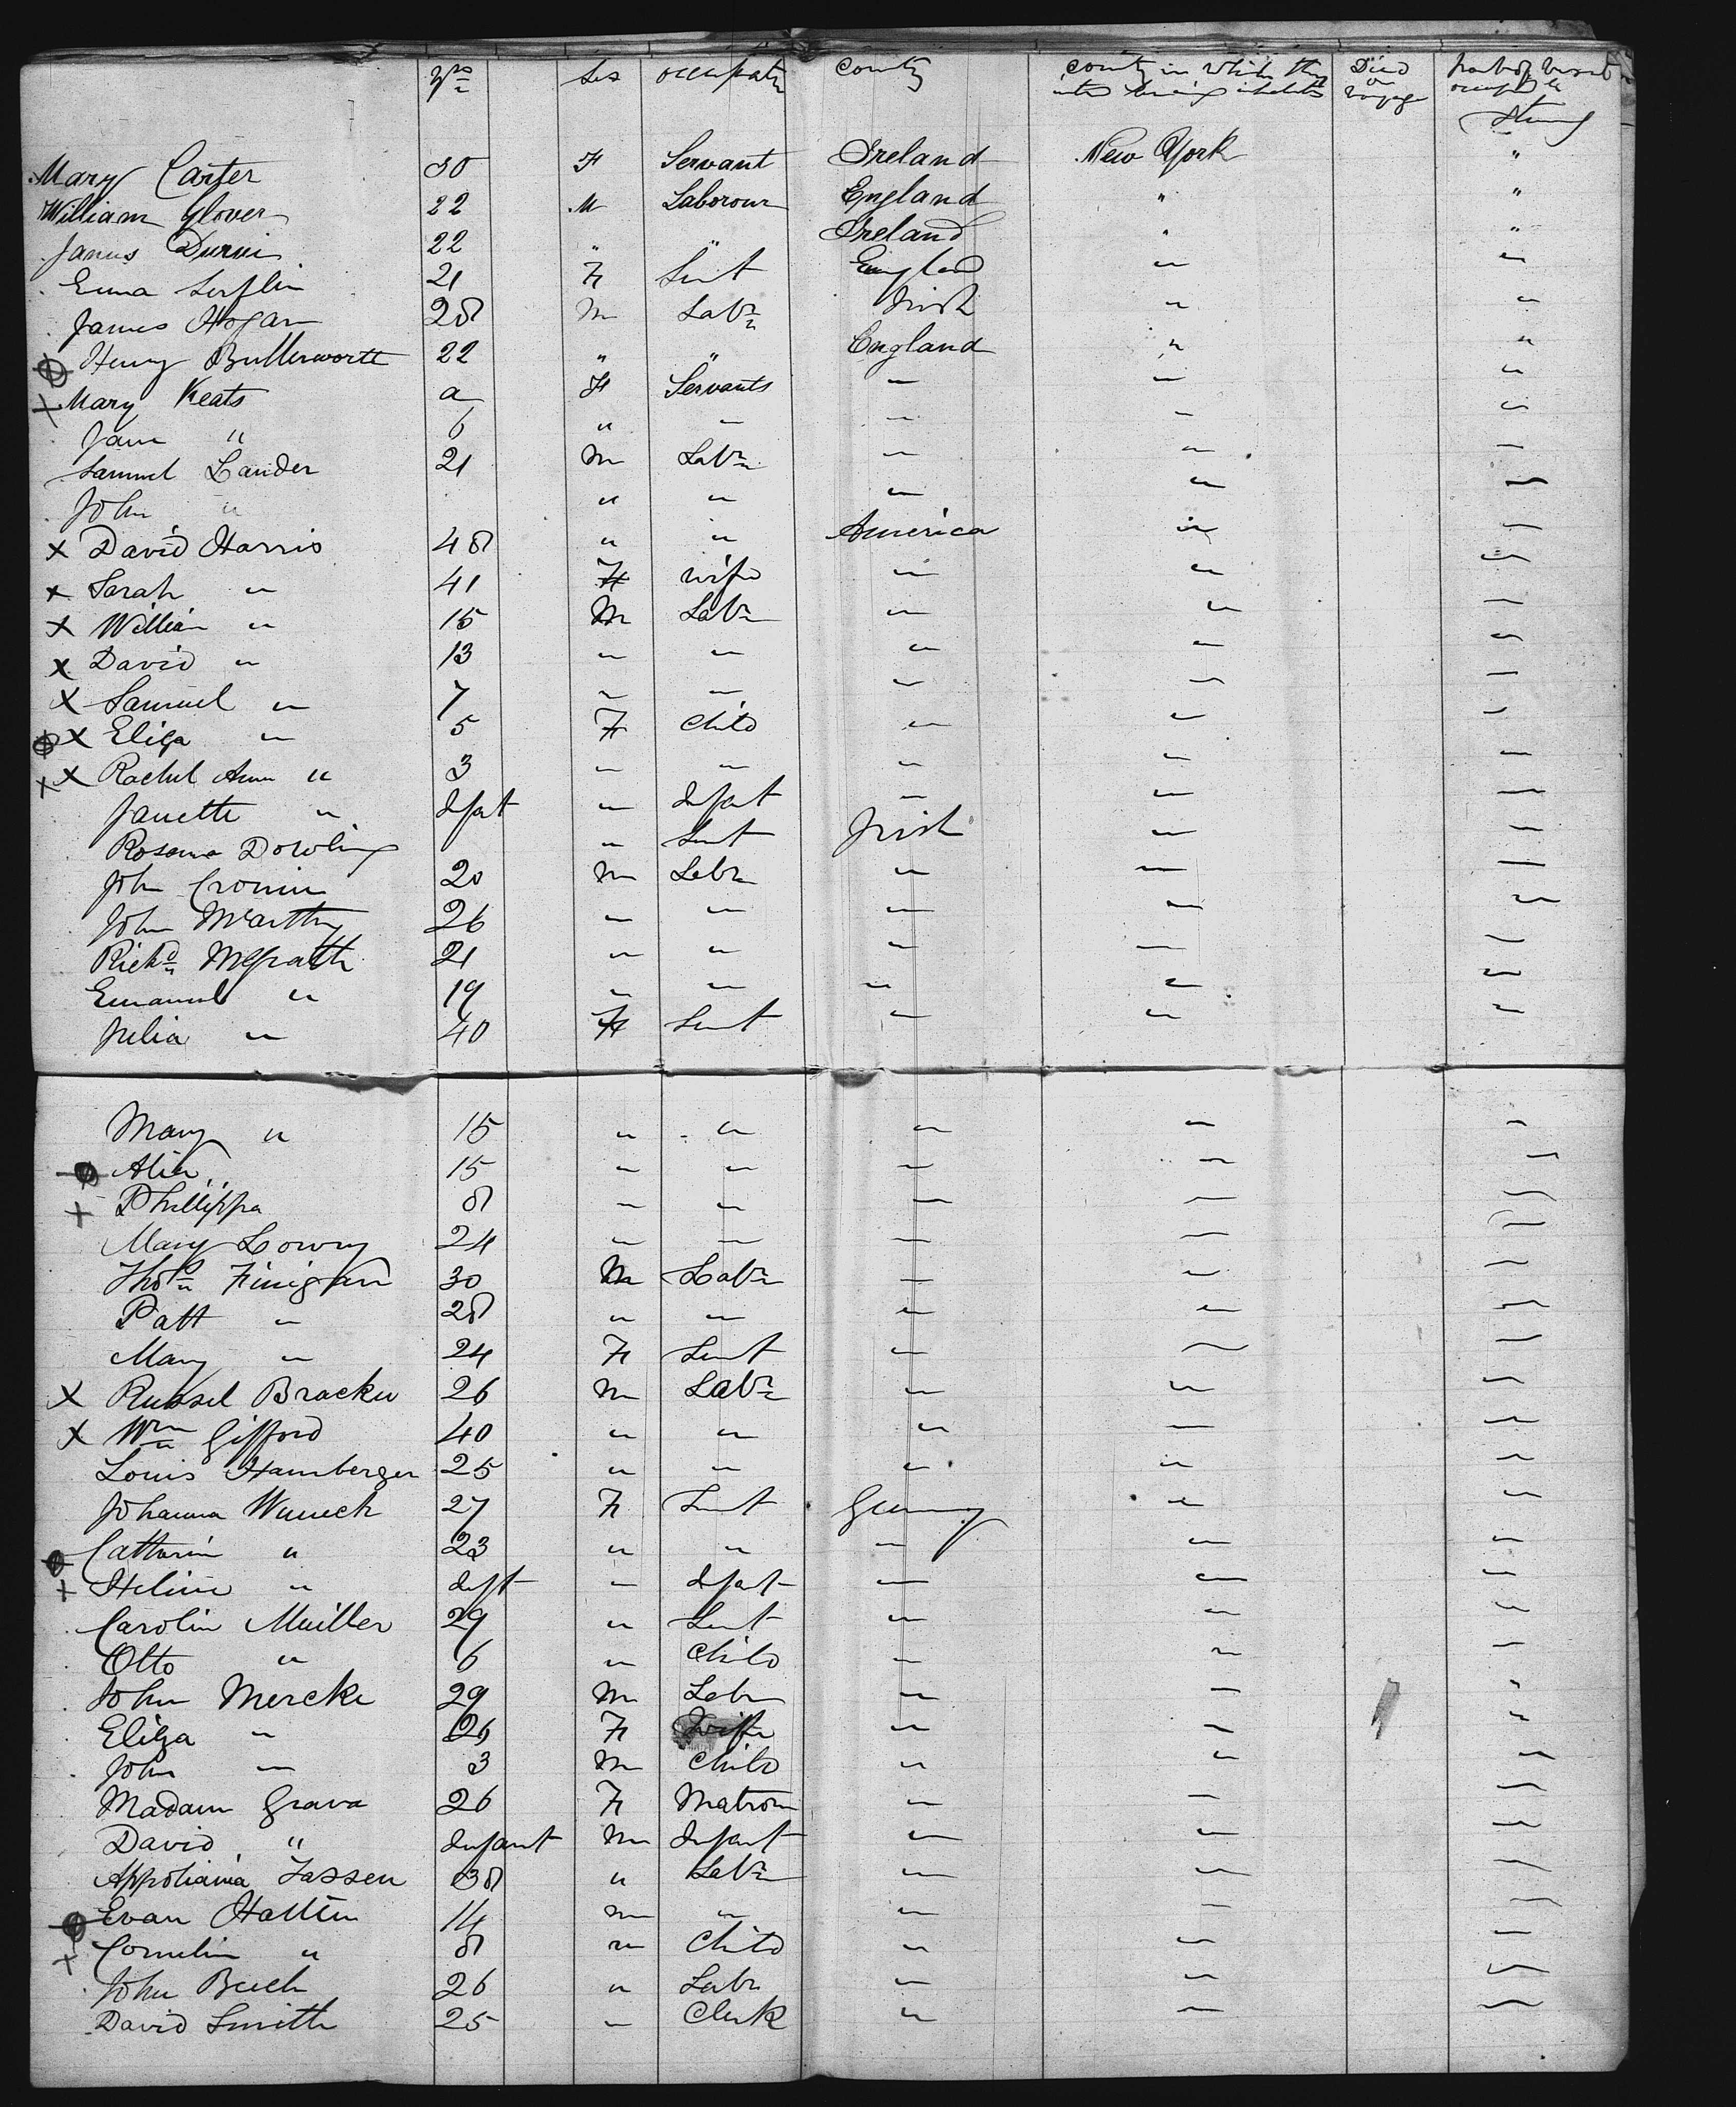 yrs Sex occupatn County County in which they Died on Part of Vessel
intend becoming inhabitants voyage occupied
Mary Carter 30 F Servant Ireland New York "
William Glover 22 M Labourour England " "
James 22 " " Ireland " "
Emma 21 F Sevt England " "
James Hogan 28 M Labr Irish " "
Henry Butterworth 22 " " England " "
Mary Keats a F Servants " " "
Jane " 6 " " " " "
Samuel Lander 21 M Labr " " "
John " " " " " "
X David Harris 48 " " America " "
X Sarah " 41 F wife " " "
X William " 15 M Labr " " "
X David " 13 " " " " "
X Samuel " 7 " " " " "
X Eliza " 5 F Child " " "
X Rachel Ann " 3 " " " " "
Janette " Infat " Infat " " "
Rosanna Dowling " Sevt Irish " "
John Cronin 20 M Labr " " "
John McCarthy 26 " " " " "
Richd McGrath 21 " " " " "
Emanuel " 19 " " " " "
Julia " 40 F Sevt " " "
Mary " 15 " " " " "
Alice 15 " " " " "
Phillippa 8 " " " " "
Mary Lowry 24 " " " " "
Thos Finigan 30 M Labr " " "
Patt " 28 " " " " "
Mary " 24 F Sevt " " "
X Russel Bracken 26 M Labr " " "
X Wm Gifford 40 " " " " "
Louis Hamberger 25 " " " " "
Johanna Wunsch 27 F Sevt Germy " "
Catharin " 23 " " " " "
Helene " Inft " Infat " " "
Carolin Muiller 29 " Sevt " " "
Otto " 6 " Child " " "
John Mercke 29 M Labr " " "
Eliza " 26 F Wife " " "
John " 3 M Child " " "
Madam Grava 26 F Matron " " "
David " Infant M Infant " " "
Appoliania Jassen 38 " Labr " " "
Evan Hatten 14 M " " " "
Cornelin " 8 m Child " " "
John Buch 26 " Labr " " "
David Smith 25 " Clerk " " "